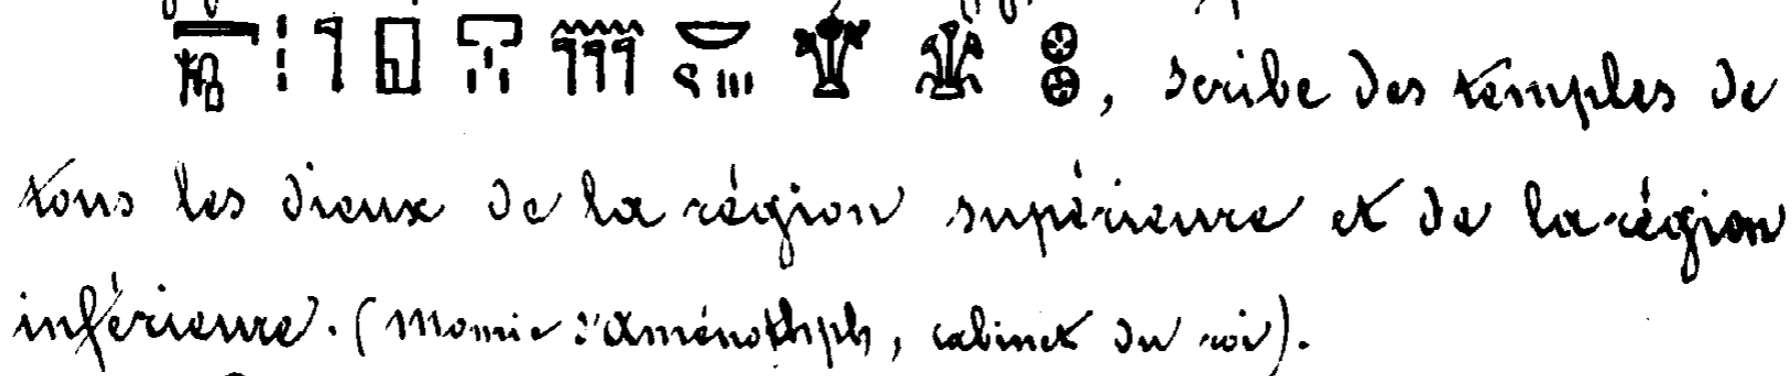 , scribe des temples de
tous les dieux de la région supérieure et de la région
inférieure. (Momie d'aménothph, cabinet du roi).